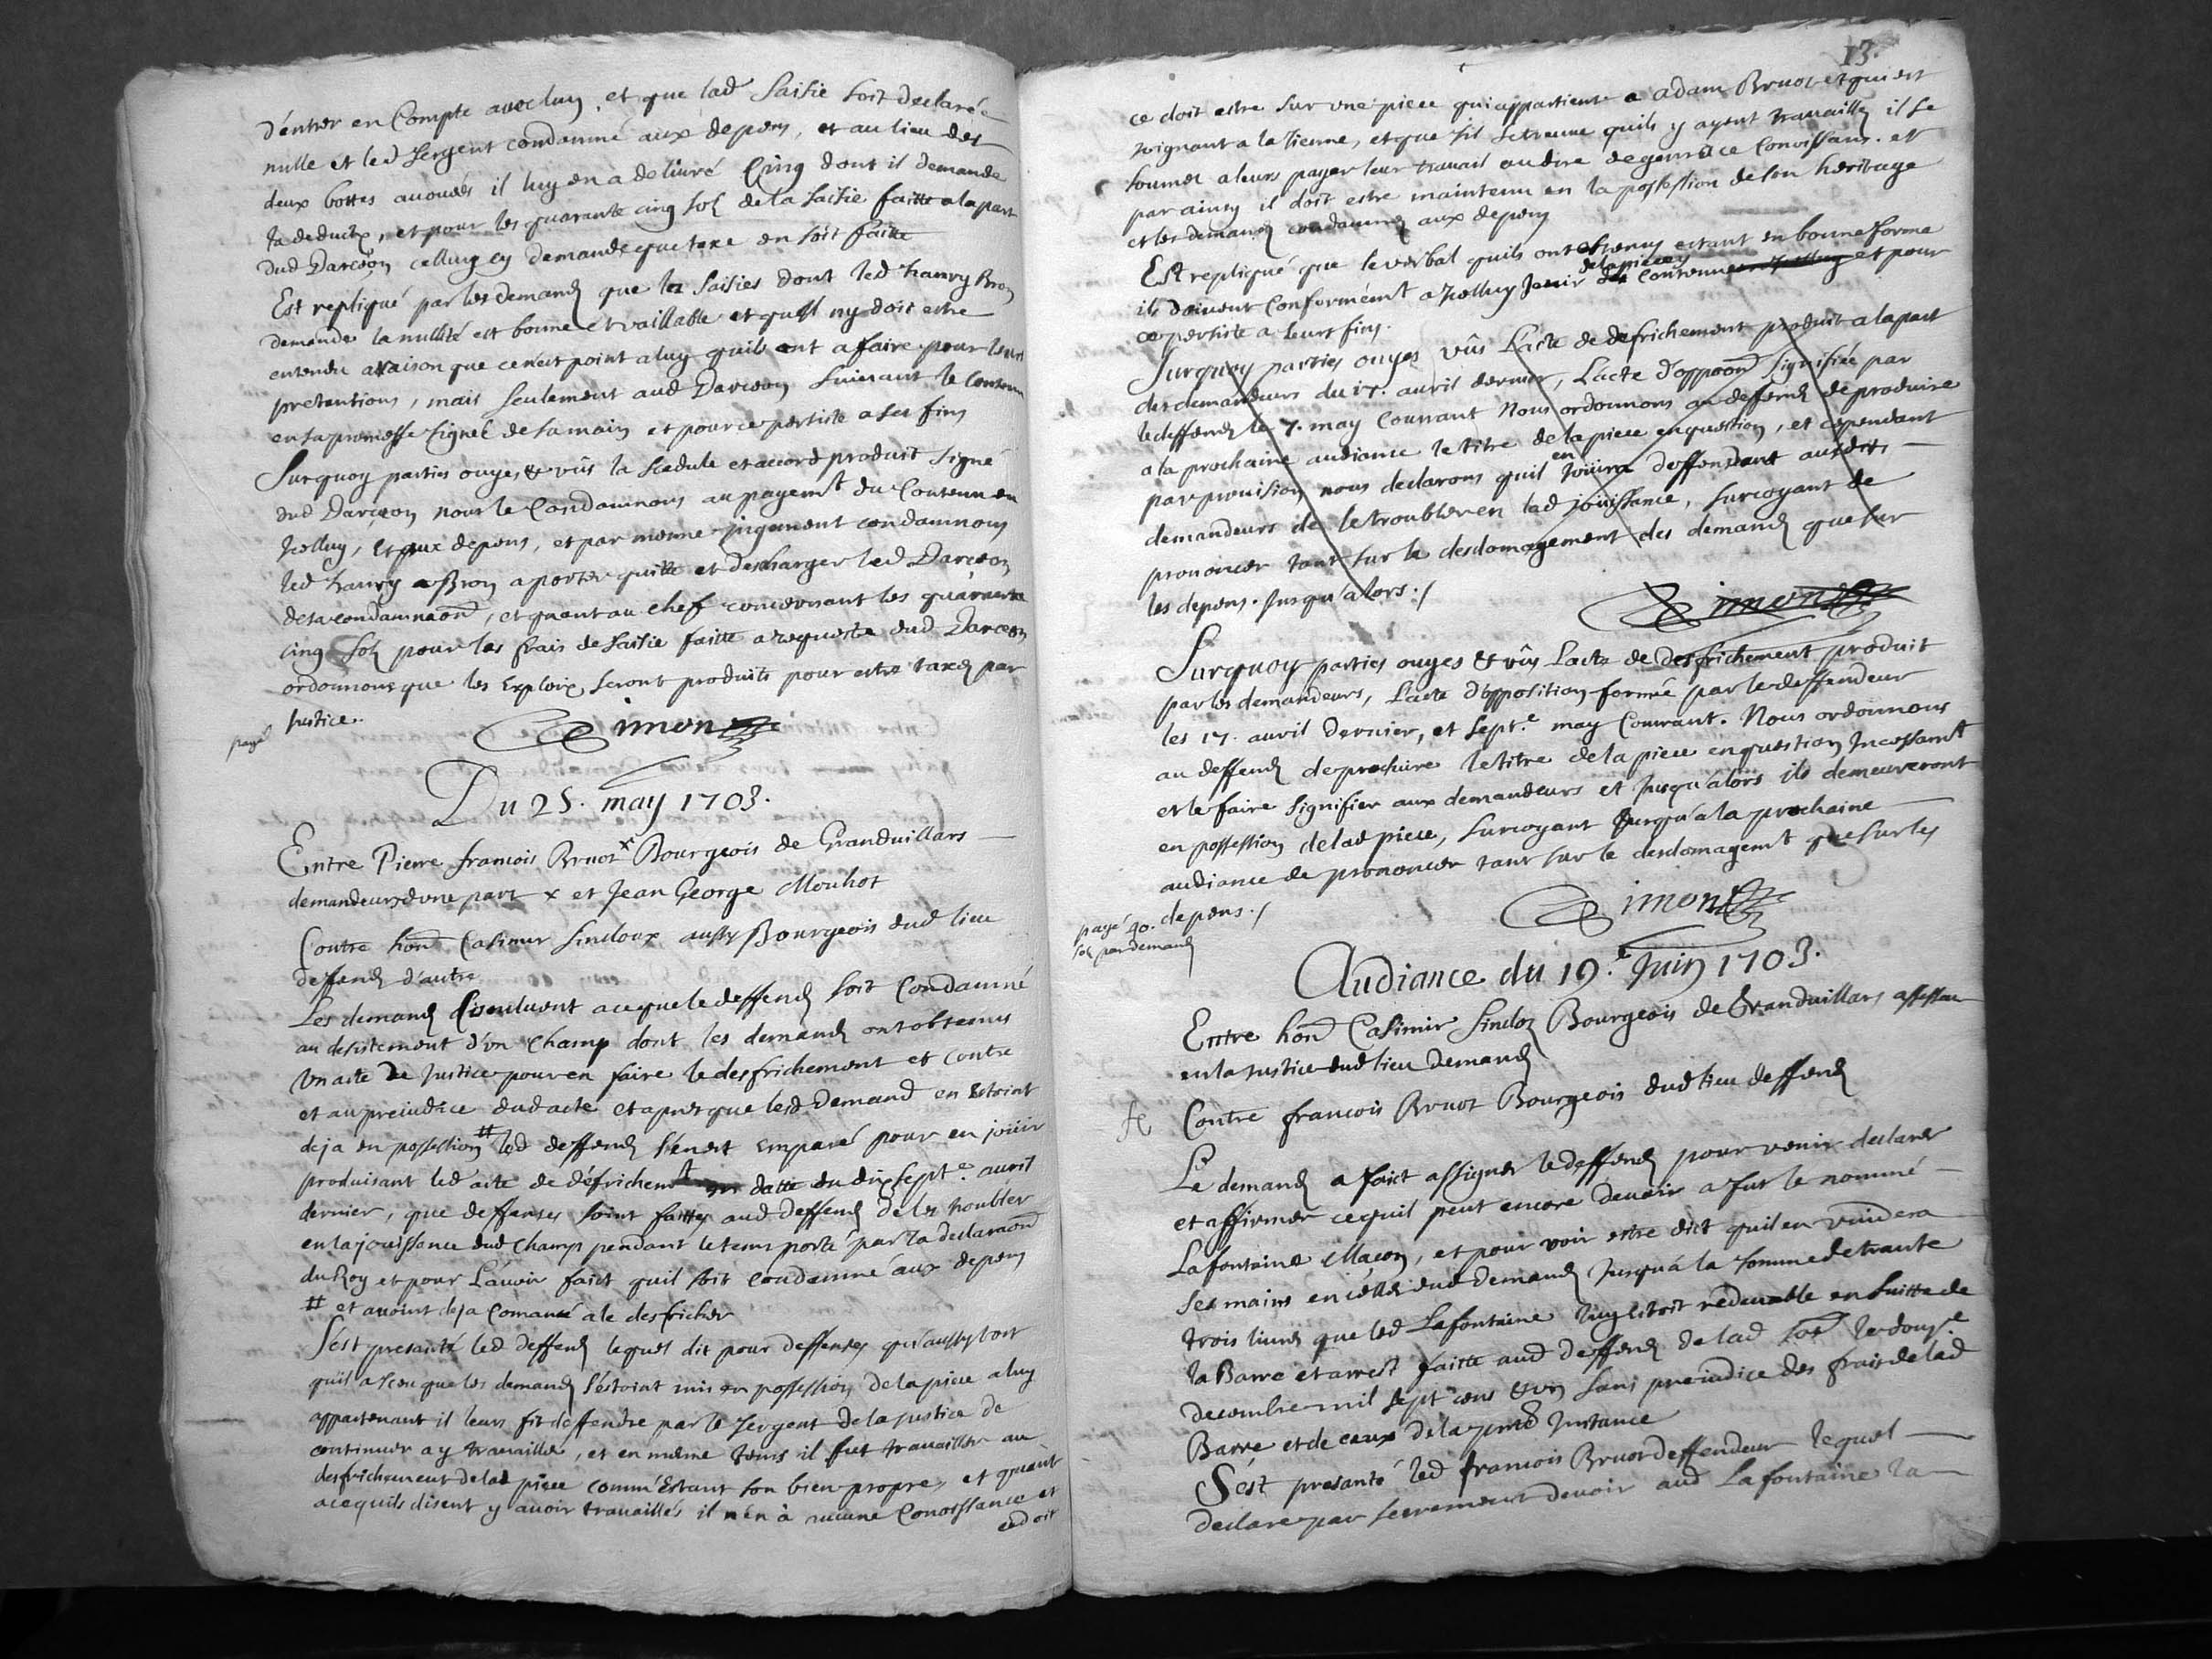 d'entrer en Compte avec luy, et que lad Saisie soit declaré
nulle et led Sergent condamné aux depens, et au lieu des
deux bottes avouées il luy en a delivré Cinq dont il demande
la deductx, et pour les quarante cinq sols de la saisie faitte a la part
dud Darceon celluy cy demande que taxe en soit faitte
Est repliqué par les demands que la Saisies dont led hanry Bron
demande la nullité est bonne et vaillable et quil ny doit estre
entendu a raison que ce n'est point a luy quils ont a faire pour leurs
pretentions, mais seulement aud Darceon suivant le Contenu
en sa promesse signeé de sa main et pour ce persiste a ses fins
Surquoy parties ouyes, & vûs la scedule et accord produit signé
dud Darceon nous le Condamnons au payemt du Contenu en
icelluy, et aux depens, et par mesme jugement condamnons
led hanry Bron a porter quitte et descharger led Darceon
de sa condamnaon, et quant au chef concernant les quarante
cinq sols pour les frais de saisie faitte a requeste dud Darceon
ordonnons que les Exploix seront produits pour estre taxés par
Justice.
payé
Simon
Du 25. may 1703.
Entre Pierre francois Bruot x Bourgeois de Granduillars
demandeurs d'une part x et Jean George Mouhot
Contre hond Casimir Sindoux aussy Bourgeois dud lieu
deffends d'autre
Les demands Concluent a ce que le deffends soit Condamné
au desistement d'un Champ dont les demands ont obtenus
un acte de Justice pour en faire le desfrichement et contre
et au preiudice dud acte et apres que lesd Demand en Estoint
deja en possession # led deffends s'en est emparé pour en joüir
produisant led acte de défrichemt en datte du dix sept.e avril
dernier, que deffenses soint faittes aud deffends de les troubler
en la jouissance dud Champ pendant le tems porté par la declaraon
du Roy et pour L'avoir faict quil soit condamné aux depens
# et avoint deja Comancé a le desfricher
S'est presanté led deffends lequel dit pour deffenses qu'aussytost
quil a sceu que les demands s'éstoint mis en possession de la piece a luy
appartenant il leurs fit deffendre par le Sergent de la justice de
continuer a y travailler, et en même tems il fut travailler au
desfrichement de lad piece comm'Estant son bien propre, et quant
a ce quils disent y avoir travaillés il n'en à aucune Conoissance et
ce doit
13.
ce doit estre sur une piece qui appartient a adam Bruot et qui est
joignant a la sienne, et que sil se treuve quils y ayent travaillés il se
soumet a leurs payer leur travail au dire de gens a ce Conoissans. et
par ainsy il doit estre maintenu en la possession de son heritage
et les demands condamnés aux depens
Est repliqué que le verbal quils ont obtenus estant en bonne forme
ils doivent Conformémt a icelluy jouir de la piece y Contenue et pour
ce persiste a leurs fins.
Surquoy parties ouyes vûs L'acte de defrichement produit a la part
des demandeurs du 17. avril dernier, L'acte d'oppoon signifiée par
le deffends le 7. may Courrant Nous ordonnons au deffends de produire
a la prochaine audiance le titre de la piece en question, et cependant
par provision nous declarons quil en Joüira deffendant ausdits
demandeurs de le troubler en lad joüissance, surcoyant de
prononcer tant sur le desdomagement des demands que sur
les depens. Jusqu'alors./
Simon
Surquoy parties ouyes & vûs L'acte de desfrichement produit
par les demandeurs, L'acte d'opposition formée par le deffendeur
les 17. avril Dernier, et Sept.e may Courrant. Nous ordonnons
au deffends de produire le titre de la piece en question Incessamt
et le faire signifier aux demandeurs et Jusqu'alors ils demeureront
en possession de lad piece, surcoyant Jusqu'a la prochaine
audiance de prononcer tant sur le desdomagemt que sur les
depens./
payé 40.
sols par demands
Simon
Audiance du 19.e Juin 1703.
Entre hond Casimir Sindoz Bourgeois de Granduillars assesseur
en la Justice dud lieu Demands
Contre francois Bruot Bourgeois dud lieu deffends
Le demands a faict assigner le deffends pour venir declarer
et affirmer ce quil peut encore devoir a fut le nommé
Lafontaine Macon, et pour voir estre dict quil en vuidera
ses mains en icelle dud Demands Jusqu'a la somme de trante
trois livres que led Lafontaine luy estoit redevable en suitte de
la Barre et arrest faitte aud deffends de lad som le douz.e
decembre mil sept cens & un sans preiudice des frais de lad
Barre et de ceux de la pnte Instance
S'est presanté led francois Bruot deffendeur lequel
declare par serrement devoir aud Lafontaine la